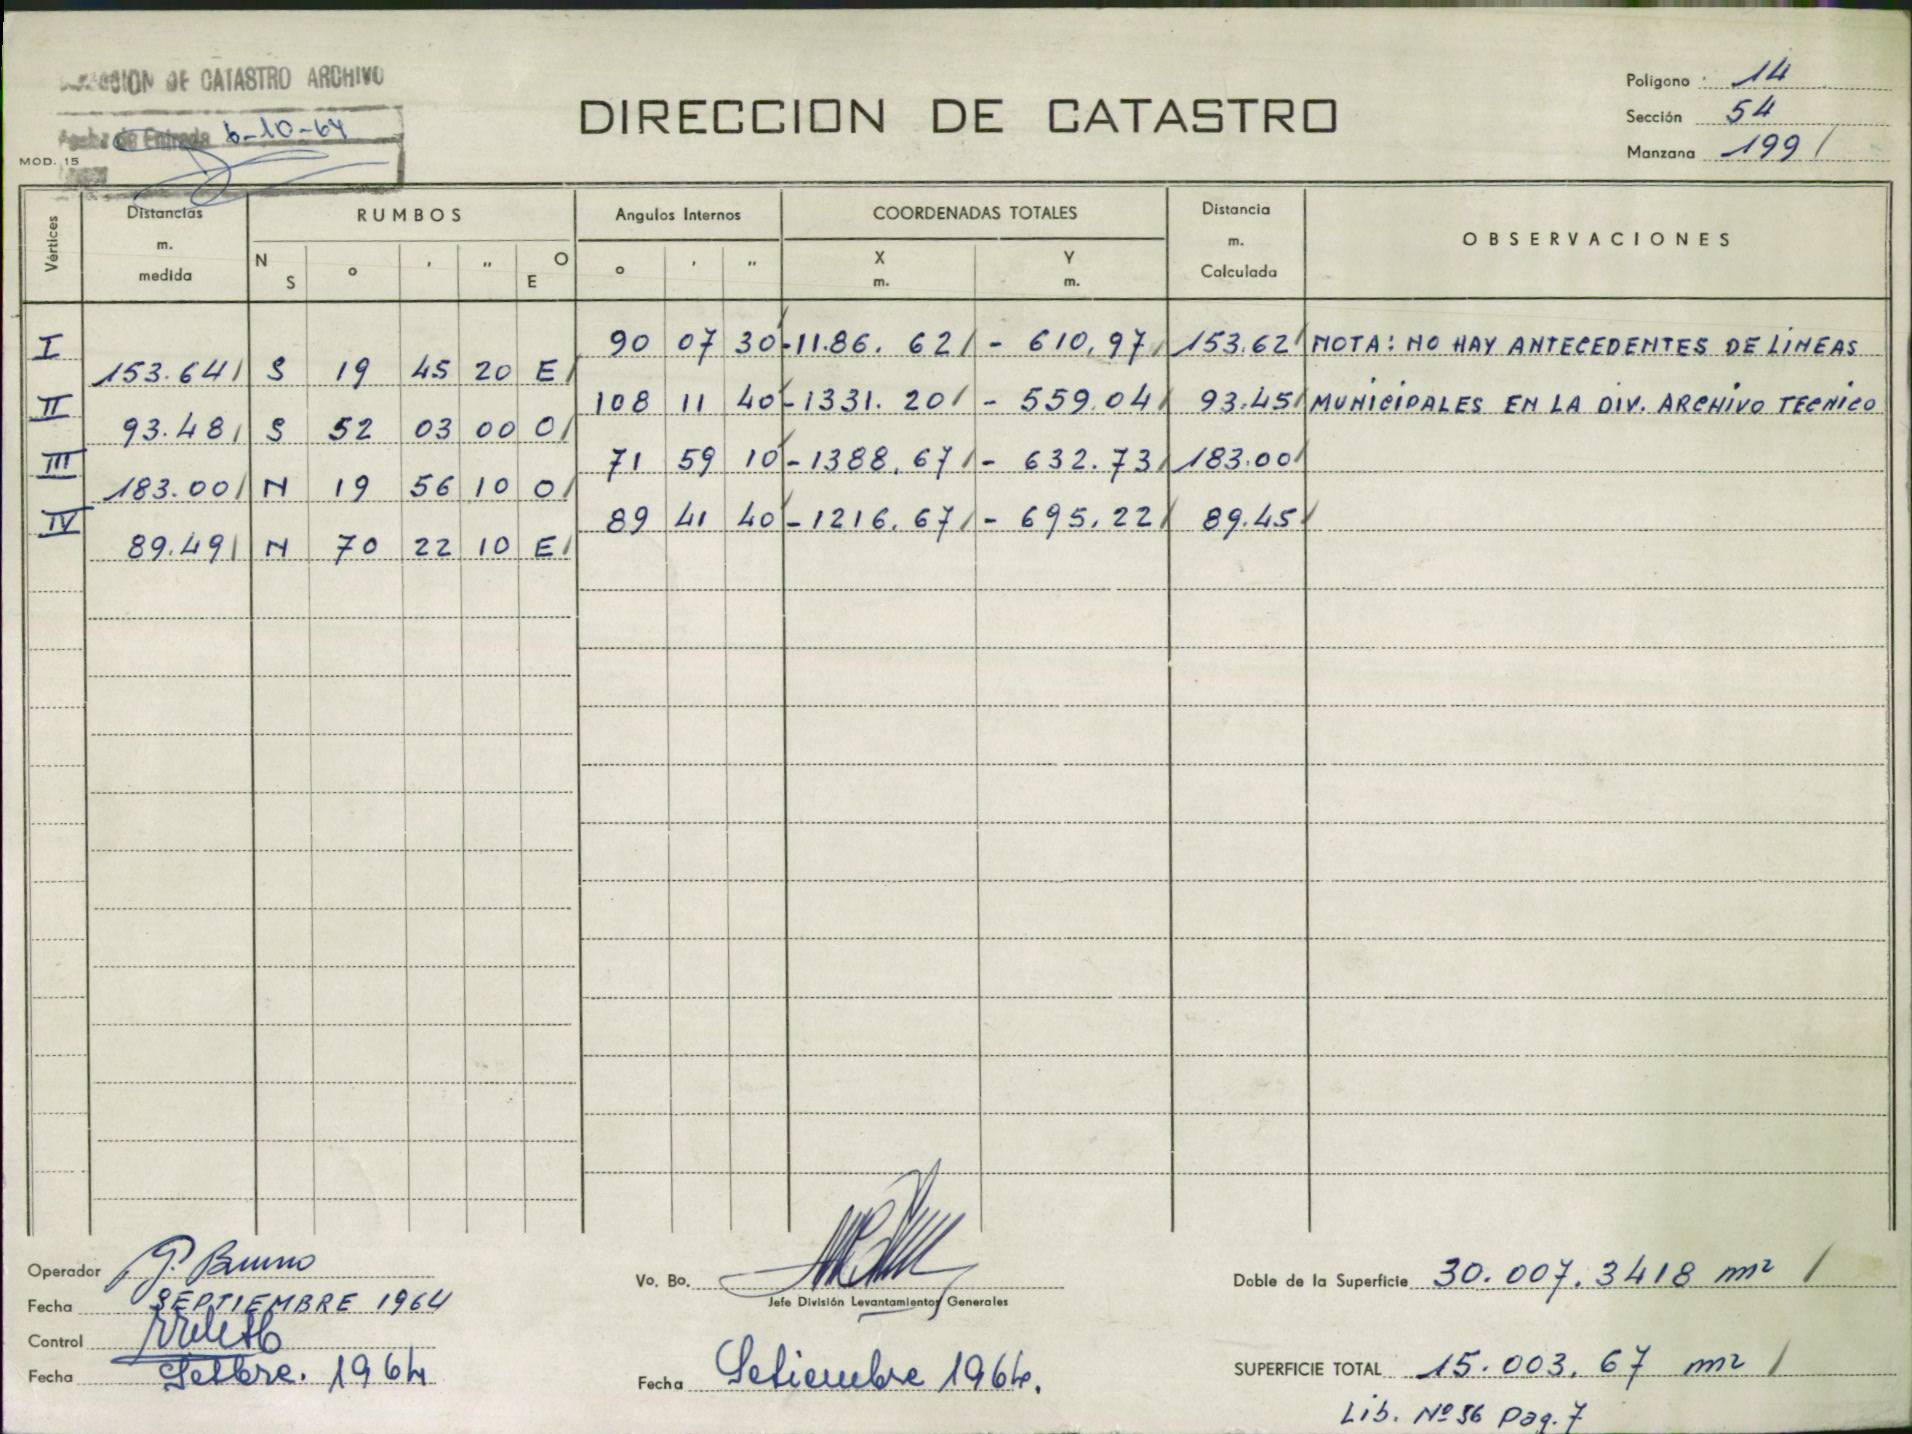 DE CATASTRO ARCHIVO
Fecha de Entrada 6-10-64
MOD. 15
DIRECCION DE CATASTRO
Poligono 14
Sección 54
Manzana 199
Vértices
Distancias m. medida
RUMBOS
N S ° ' " O E
Angulos Internos
° ' "
COORDENADAS TOTALES
X m. Y m.
Distancia m. Calculada
OBSERVACIONES
I 90 07 30 -1186.62 - 610,97 153.62 NOTA: NO HAY ANTECEDENTES DE LíNEAS
153.64 S 19 45 20 E
II 108 11 40 -1331.20 - 559.04 93.45 MUNiCiPALES EN LA DiV. ARCHiVO TECNiCO
93.48 S 52 03 00 O
III 71 59 10 -1388,67 - 632.73 183.00
183.00 N 19 56 10 O
IV 89 41 40 -1216,67 - 695,22 89.45
89.49 N 70 22 10 E
Operador G. Bruno
Fecha SEPTIEMBRE 1964
Control
Fecha Setbre. 1964
Vo. Bo.
Jefe División Levantamientos Generales
Fecha Setiembre 1964.
Doble de la Superficie 30.007,3418 m²
SUPERFICIE TOTAL 15.003,67 m²
Lib. Nº 56 Pag. 7